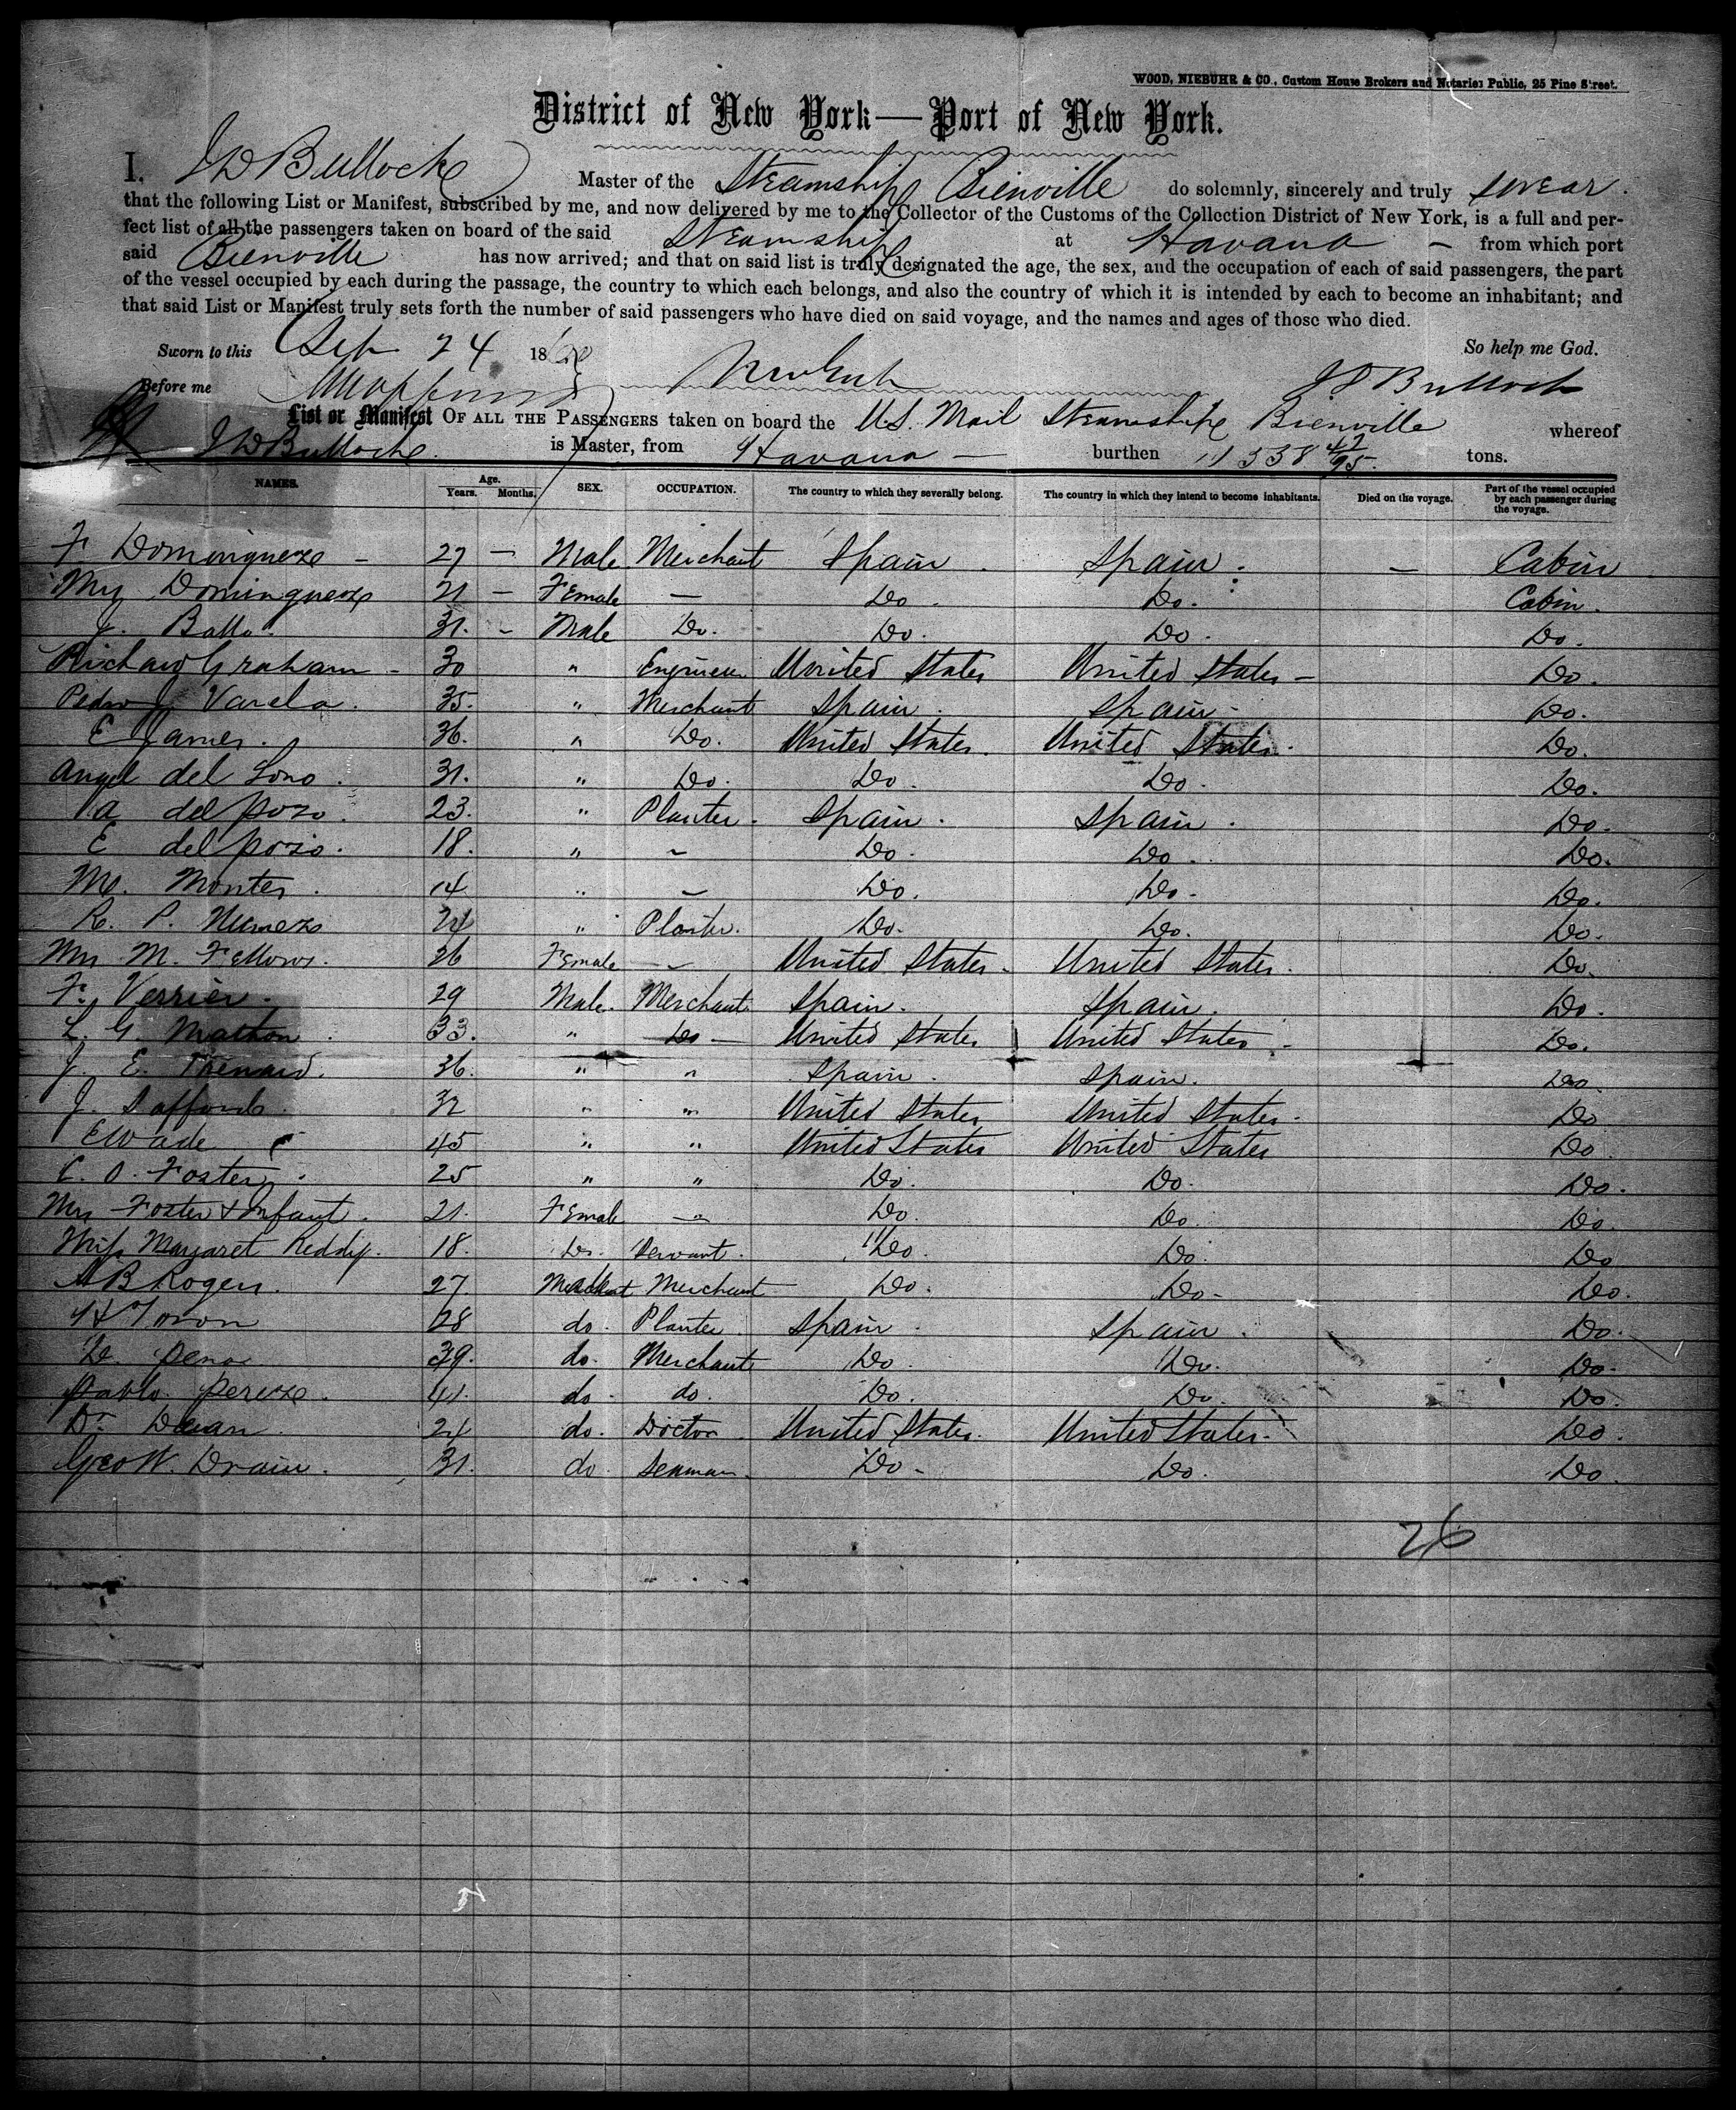 WOOD, NIEBUHR & CO., Custom House Brokers and Notaries Public, 25 Pine Street.
District of New York—Port of New York.
I, J D Bullock Master of the Steamship Bienville do solemnly, sincerely and truly swear
that the following List or Manifest, subscribed by me, and now delivered by me to the Collector of the Customs of the Collection District of New York, is a full and per-
fect list of all the passengers taken on board of the said Steamship at Havana — from which port
said Bienville has now arrived; and that on said list is truly designated the age, the sex, and the occupation of each of said passengers, the part
of the vessel occupied by each during the passage, the country to which each belongs, and also the country of which it is intended by each to become an inhabitant; and
that said List or Manifest truly sets forth the number of said passengers who have died on said voyage, and the names and ages of those who died.
Sworn to this Sep 24 1860 So help me God.
Before me J D Bullock
List or Manifest OF ALL THE PASSENGERS taken on board the U.S. Mail Steamship Bienville whereof
J D Bullock is Master, from Havana — burthen 1558 47/95 tons.
NAMES. Age. Years. Months. SEX. OCCUPATION. The country to which they severally belong. The country in which they intend to become inhabitants. Died on the voyage. Part of the vessel occupied by each passenger during the voyage.
F Dominguez — 27 — Male Merchant Spain. Spain. — Cabin
Mrs Dominguez 21 — Female — Do. Do. Cabin.
J. Balla. 31. — Male Do. Do. Do. Do.
Richard Graham — 30 " Engineer United States United States — Do.
Pedro J Varela. 35. " Merchant Spain. Spain — Do.
E James. 36. " Do. United States. United States. Do.
Angel del Lono. 31. " Do. Do. Do. Do.
A del pozo. 23. " Planter. Spain. Spain. Do.
E del pozo. 18. " ~ Do. Do. Do.
M. Montes. 14 " — Do. Do. Do.
R. P. Nunez 24 " Planter. Do. Do. Do.
Mrs M. Fellows. 26 Female — United States. United States. Do.
F. Verrier. 29 Male. Merchant. Spain. Spain. Do.
L. G. Mathon. 33. " Do — United States United States — Do.
J. E. Thenard. 36. " " Spain. Spain. Do.
J. Saffords. 32 " " United States United States. Do
E Wade 45 " " United States United States Do.
C. O. Foster. 25 " " Do. Do. Do.
Mrs Foster & Infant. 21. Female — Do. Do. Do.
Miss Margaret Reddy. 18. Do. Servant. Do. Do. Do
A B Rogers. 27. Merchant Do. Do. Do.
H Toron 28 do. Planter. Spain. Spain. Do.
D. Pena 39. do. Merchant Do. Do. Do.
Pablo Perez. 41. do. do. Do. Do. Do.
Dr. Dean. 24 do. Doctor. United States. United States. Do.
Geo W. Drain. 31. do. Seaman. Do. Do. Do.
26